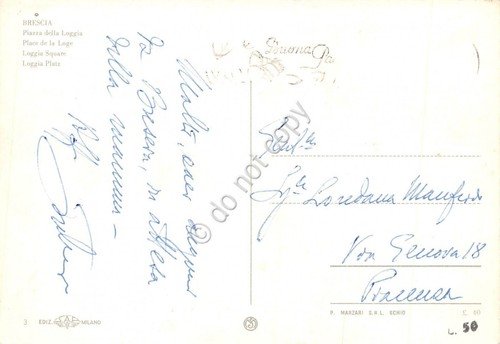 BRESCIA
Piazza della Loggia
Place de la Loge
Loggia Square
Loggia Platz
Buona
Molti, cari auguri
da Brescia, in attesa
della mamma -
Gent.ma
Sig.na Loredana Manfredi
Via Genova 18
Piacenza
© do not copy
3 EDIZ. MILANO
P. MARZARI S.R.L. SCHIO L. 40
L. 50